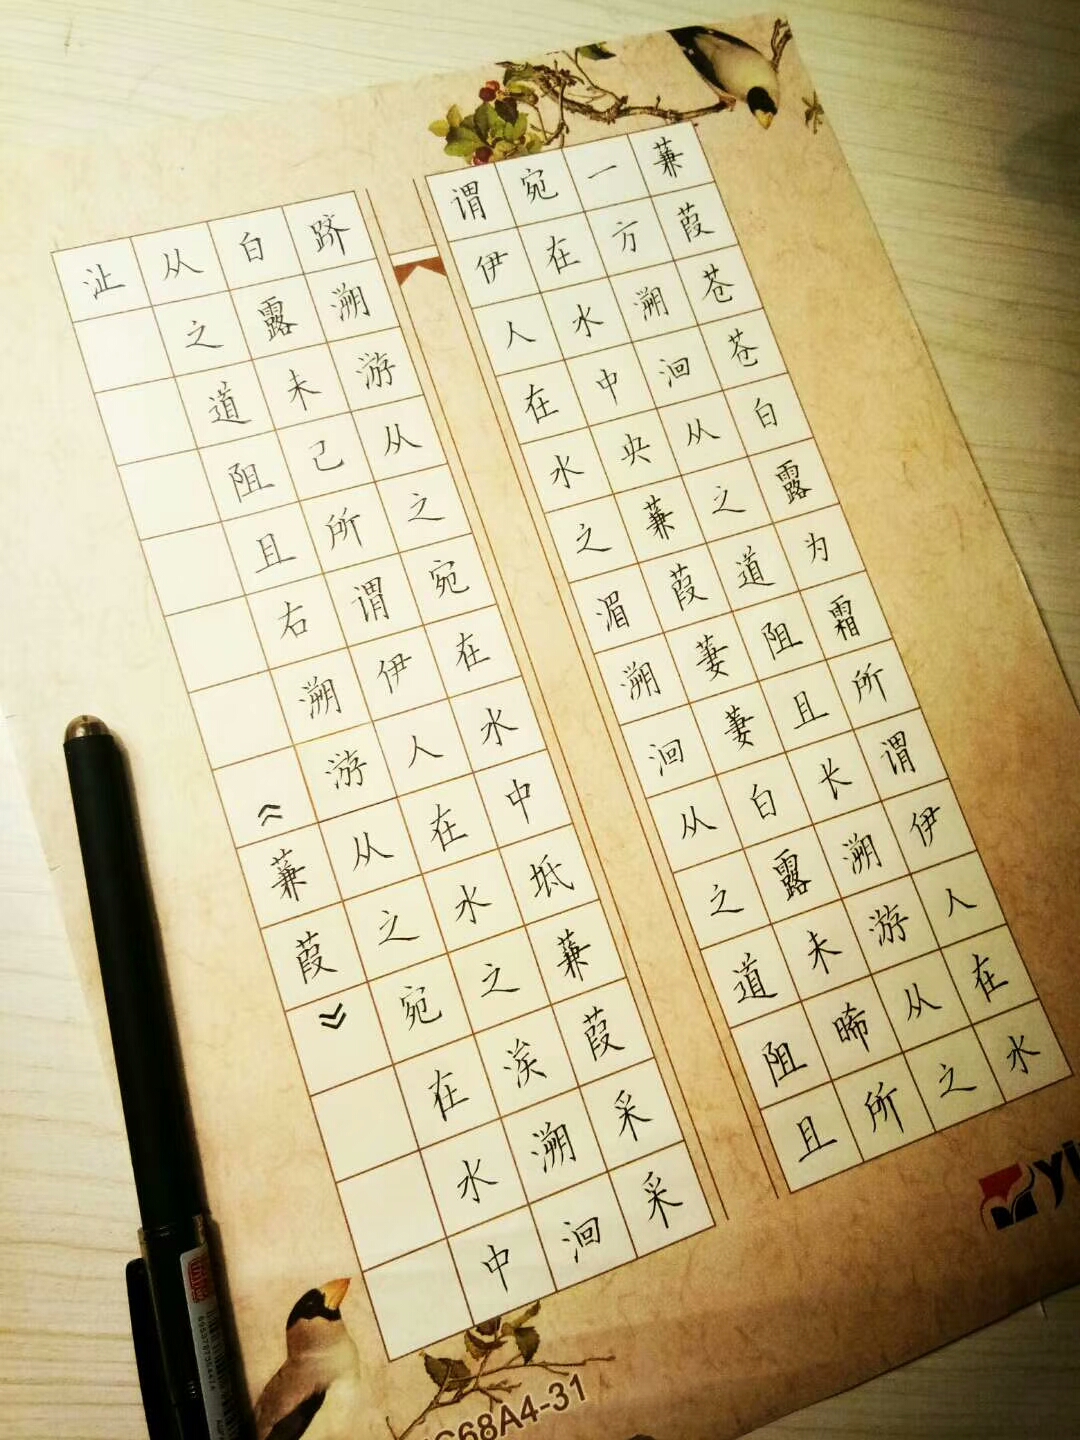 蒹葭苍苍白露为霜所谓伊人在水
一方溯洄从之道阻且长溯游从之
宛在水中央蒹葭萋萋白露未晞所
谓伊人在水之湄溯洄从之道阻且
跻溯游从之宛在水中坻蒹葭采采
白露未己所谓伊人在水之涘溯洄
从之道阻且右溯游从之宛在水中
沚
《蒹葭》
C68A4-31